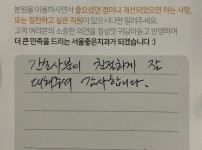 본원을 이용하시면서 좋으셨던 점이나 개선되었으면 하는 사항,
또는 칭찬하고 싶은 직원이 있으시다면 알려주세요.
고객 여러분의 소중한 의견을 정성껏 귀담아듣고 반영하여
더 큰 만족을 드리는 서울좋은치과가 되겠습니다 :)
간호사분이 친절하게 잘
대해주셔 감사합니다.